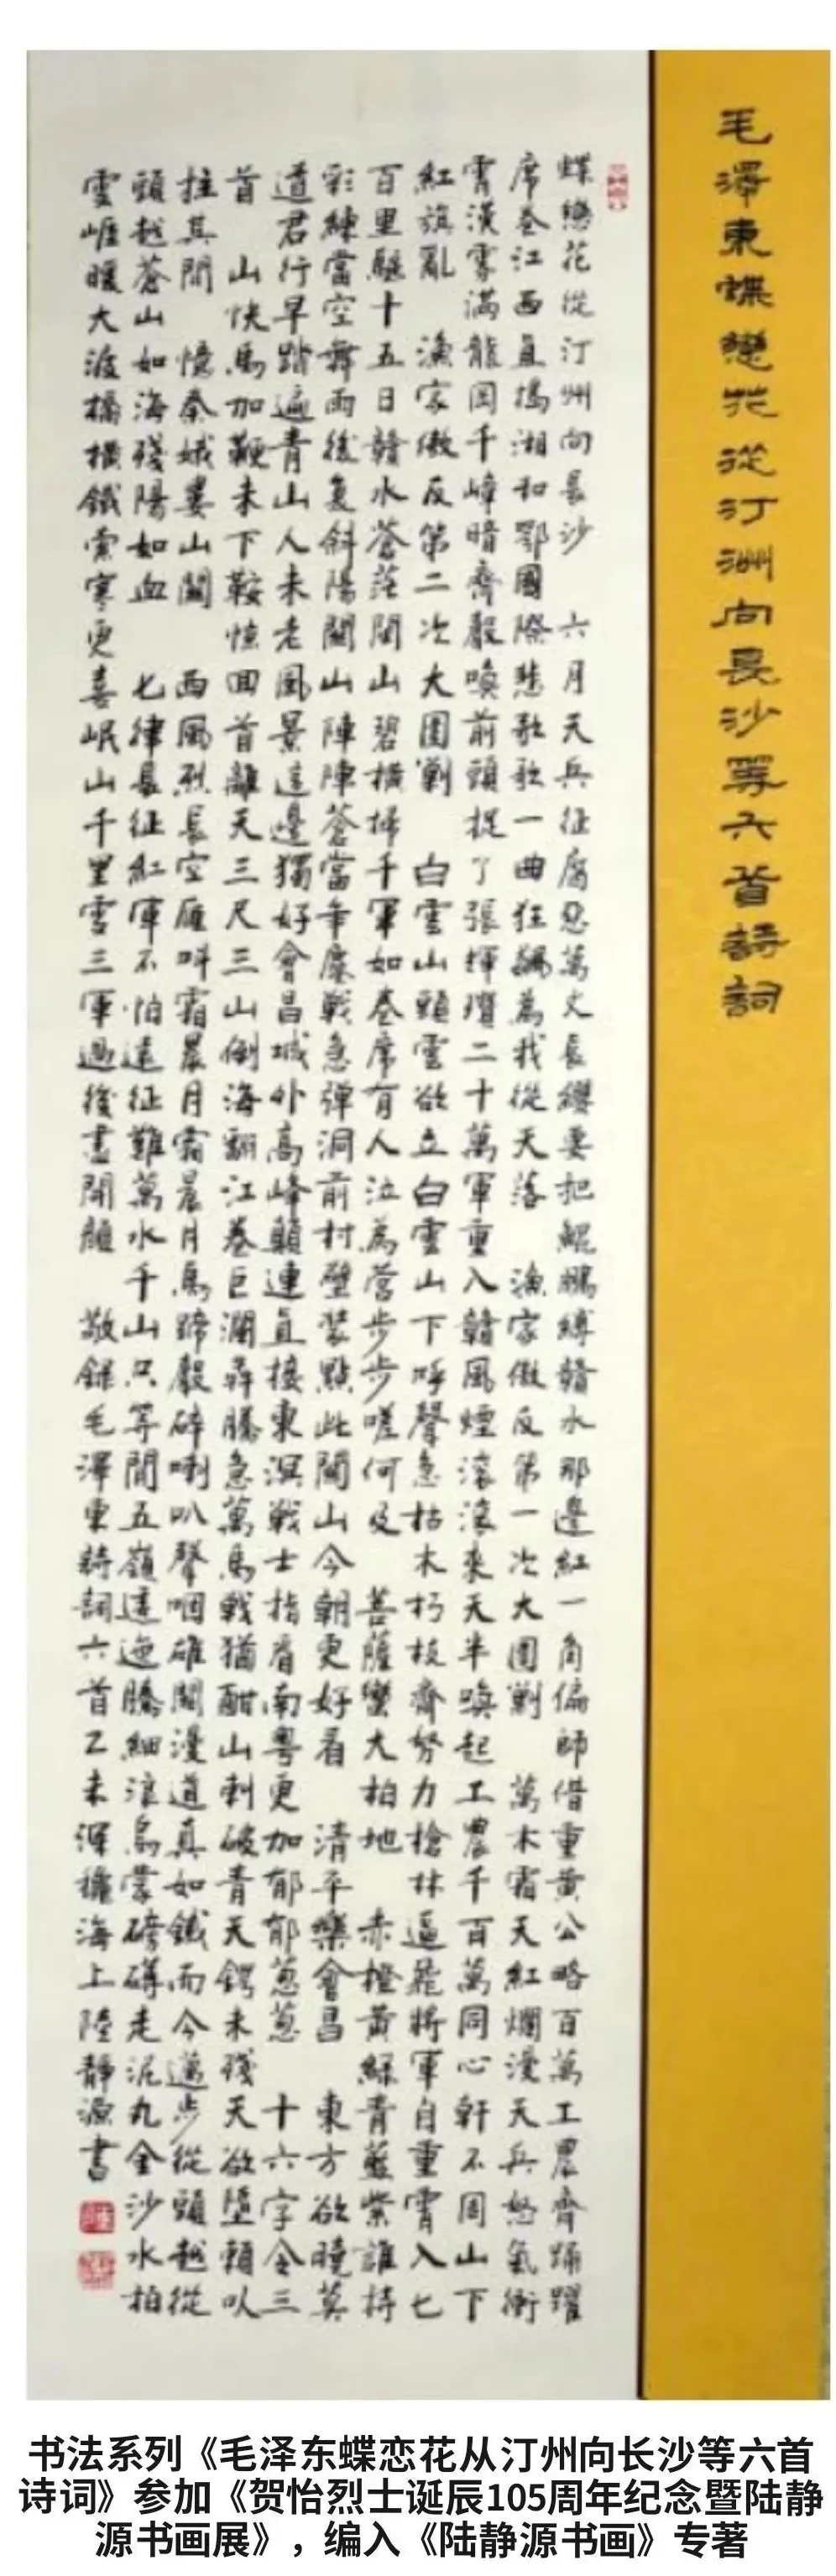 毛澤東蝶戀花從汀洲向長沙等六首詩詞
蝶戀花從汀州向長沙 六月天兵征腐惡萬丈長纓要把鯤鵬縛贛水那邊紅一角偏師借重黃公略百萬工農齊踊躍
席卷江西直搗湘和鄂國際悲歌歌一曲狂飆為我從天落 漁家傲反第一次大圍剿 萬木霜天紅爛漫天兵怒氣衝
霄漢霧滿龍岡千嶂暗齊聲喚前頭捉了張輝瓚二十萬軍重入贛風煙滾滾來天半喚起工農千百萬同心幹不周山下
紅旗亂 漁家傲反第二次大圍剿 白雲山頭雲欲立白雲山下呼聲急枯木朽枝齊努力槍林逼飛將軍自重霄入七
百里驅十五日贛水蒼茫閩山碧橫掃千軍如卷席有人泣為營步步嗟何及 菩薩蠻大柏地 赤橙黃綠青藍紫誰持
彩練當空舞雨後復斜陽關山陣陣蒼當年鏖戰急彈洞前村壁裝點此關山今朝更好看 清平樂會昌 東方欲曉莫
道君行早踏遍青山人未老風景這邊獨好會昌城外高峰顛連直接東溟戰士指看南粵更加郁郁蔥蔥 十六字令三
首 山快馬加鞭未下鞍驚回首離天三尺三山倒海翻江卷巨瀾奔騰急萬馬戰猶酣山刺破青天鍔未殘天欲墮賴以
拄其間 憶秦娥婁山關 西風烈長空雁叫霜晨月霜晨月馬蹄聲碎喇叭聲咽雄關漫道真如鐵而今邁步從頭越從
頭越蒼山如海殘陽如血 七律長征紅軍不怕遠征難萬水千山只等閒五嶺逶迤騰細浪烏蒙磅礴走泥丸金沙水拍
雲崖暖大渡橋橫鐵索寒更喜岷山千里雪三軍過後盡開顏 敬錄毛澤東詩詞六首乙未深穐海上陸靜源書
书法系列《毛泽东蝶恋花从汀州向长沙等六首
诗词》参加《贺怡烈士诞辰105周年纪念暨陆静
源书画展》，编入《陆静源书画》专著